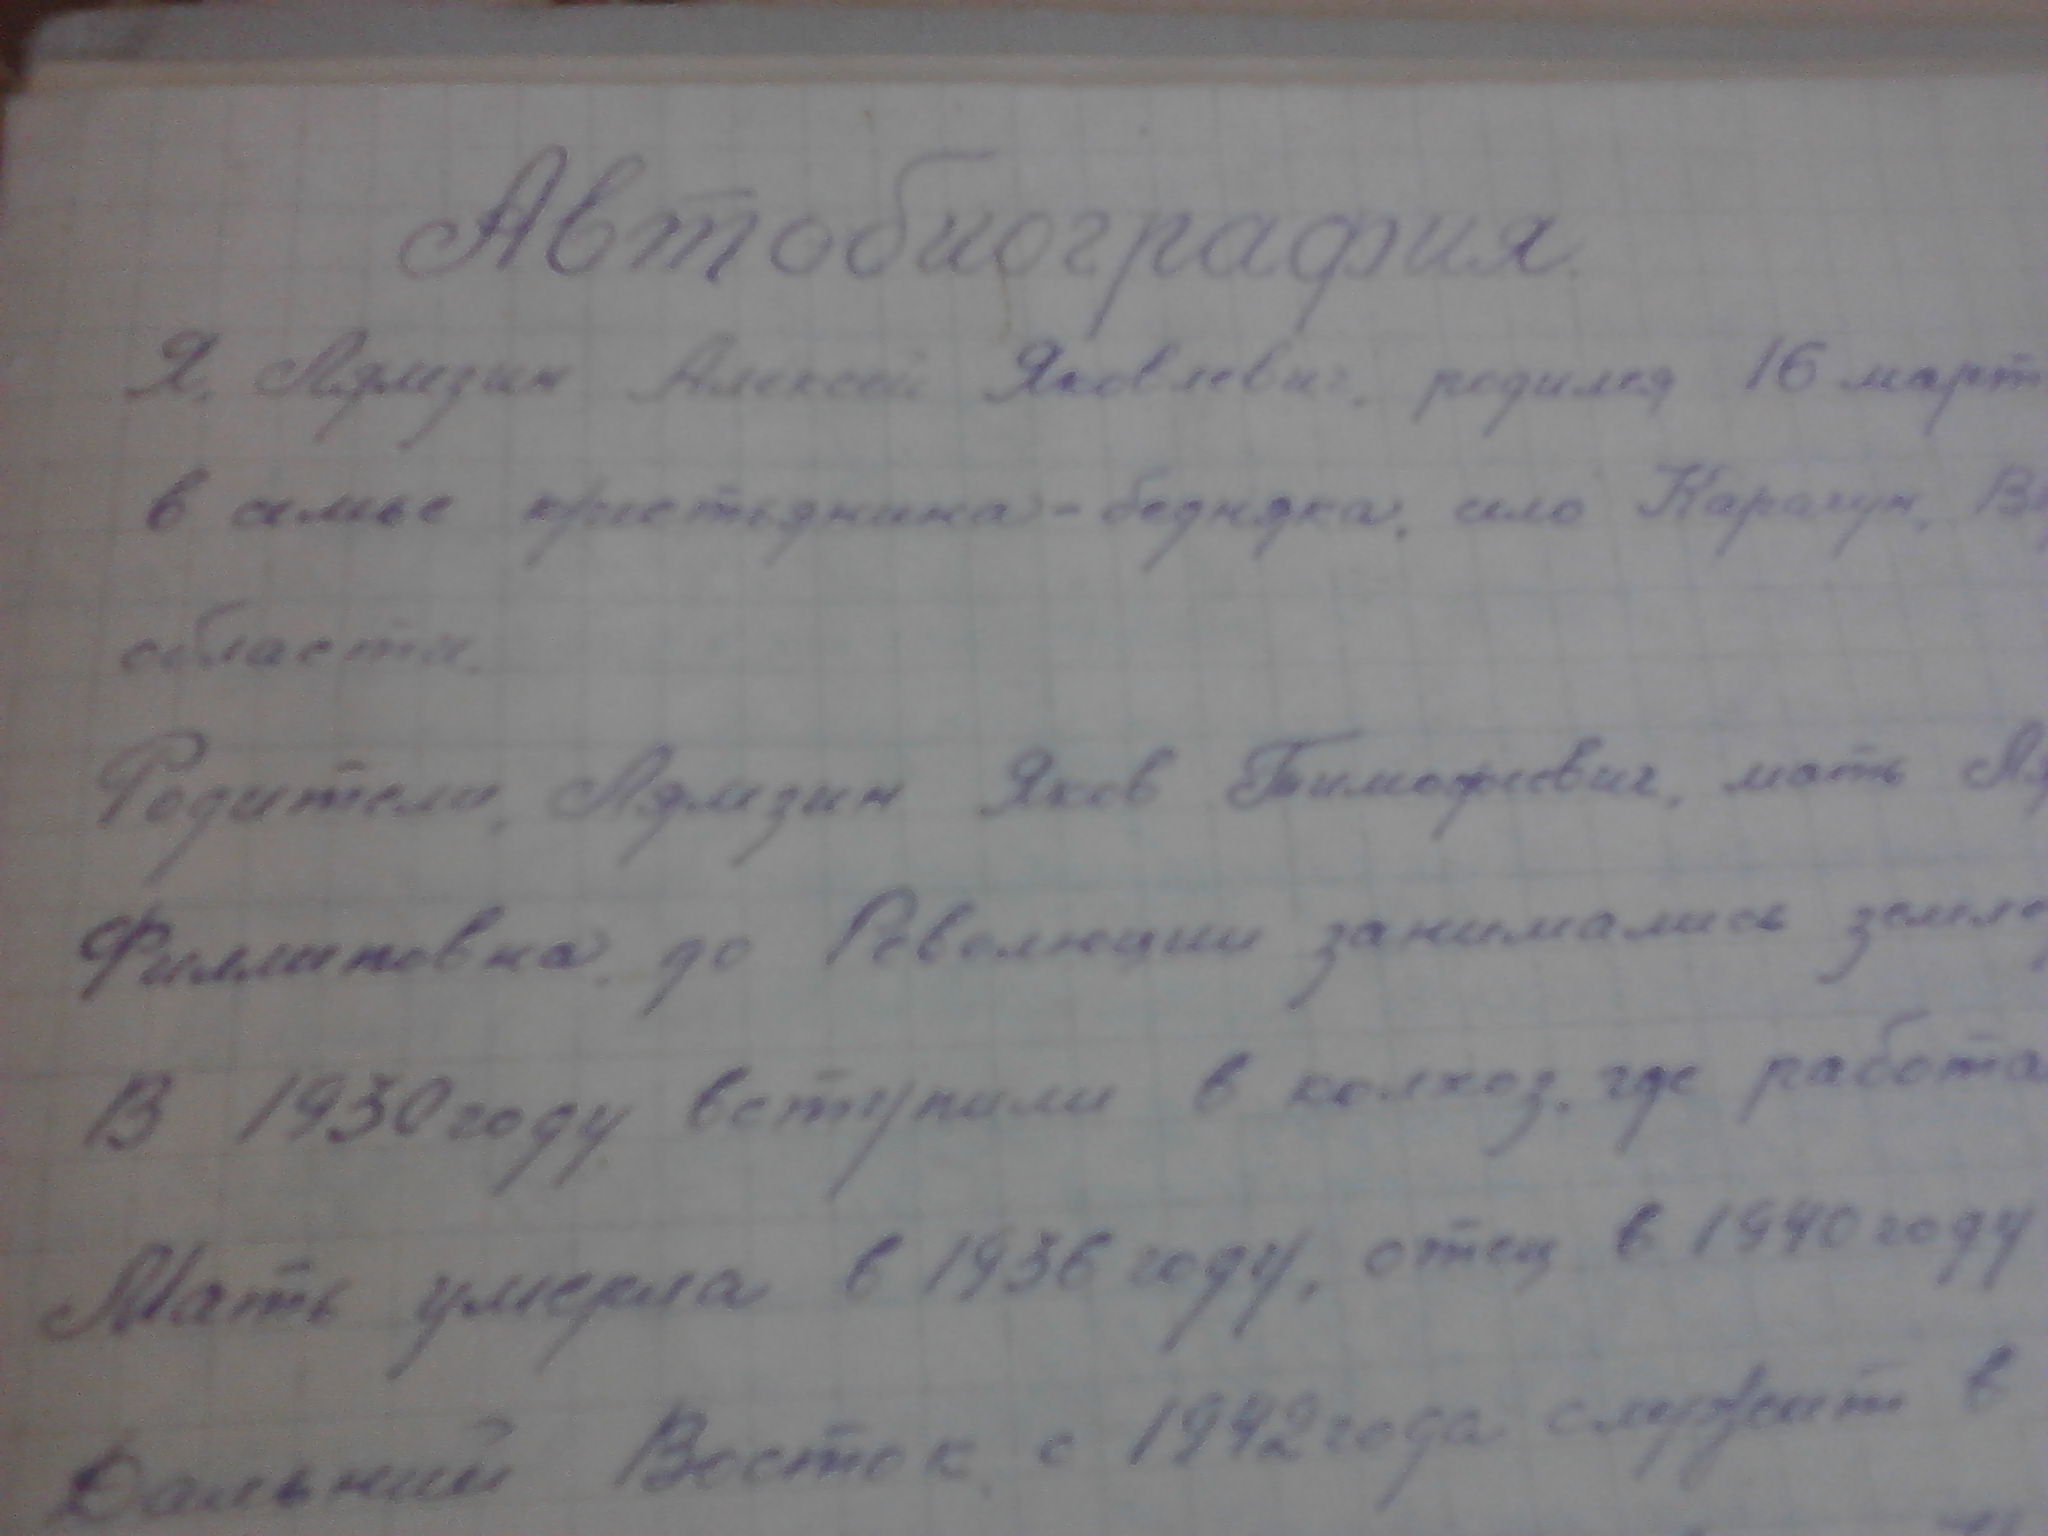 Автобиография.
Я, Лямзин Алексей Яковлевич, родился 16 март
в семье крестьянина-бедняка, село Карагун, В
области.
Родители, Лямзин Яков Тимофеевич, мать Ля
Филлиповна, до Революции занимались земле
В 1930 году вступили в колхоз, где работа
Мать умерла в 1936 году, отец в 1940 году
Дальний Восток, с 1942 года служит в